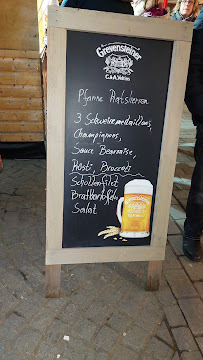 Grevensteiner
C.&A. Veltins
Pfanne Ratsherren
3 Schweinemedaillons,
Champignons,
Sauce Bearnaise,
Rösti, Broccoli
Schollenfilet
Bratkartofeln
Salat